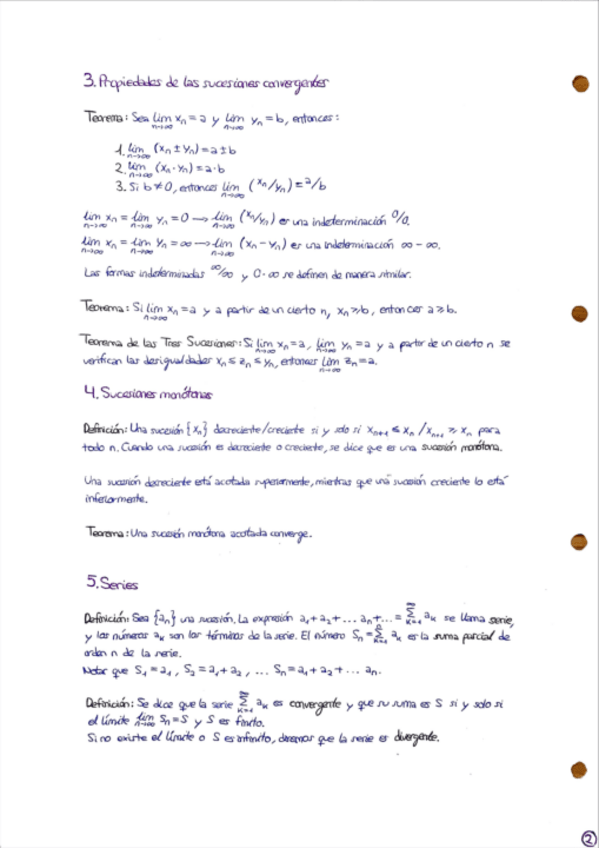 3. Propiedades de las sucesiones convergentes
Teorema: Sea lim xₙ = a y lim yₙ = b, entonces:
n→∞ n→∞
1. lim (xₙ ± yₙ) = a ± b
n→∞
2. lim (xₙ · yₙ) = a · b
n→∞
3. Si b ≠ 0, entonces lim (xₙ/yₙ) = a/b
n→∞
lim xₙ = lim yₙ = 0 → lim (xₙ/yₙ) es una indeterminación 0/0.
n→∞ n→∞ n→∞
lim xₙ = lim yₙ = ∞ → lim (xₙ - yₙ) es una indeterminación ∞ - ∞.
n→∞ n→∞ n→∞
Las formas indeterminadas ∞/∞ y 0·∞ se definen de manera similar.
Teorema: Si lim xₙ = a y a partir de un cierto n, xₙ ≥ b, entonces a ≥ b.
n→∞
Teorema de las Tres Sucesiones: Si lim xₙ = a, lim yₙ = a y a partir de un cierto n se
n→∞ n→∞
verifican las desigualdades xₙ ≤ zₙ ≤ yₙ, entonces lim zₙ = a.
n→∞
4. Sucesiones monótonas
Definición: Una sucesión {xₙ} decreciente/creciente si y solo si xₙ₊₁ ≤ xₙ / xₙ₊₁ ≥ xₙ para
todo n. Cuando una sucesión es decreciente o creciente, se dice que es una sucesión monótona.
Una sucesión decreciente está acotada superiormente, mientras que una sucesión creciente lo está
inferiormente.
Teorema: Una sucesión monótona acotada converge.
5. Series
Definición: Sea {aₙ} una sucesión. La expresión a₁ + a₂ + ... aₙ + ... = ∑ₖ₌₁^∞ aₖ se llama serie,
y los números aₖ son los términos de la serie. El número Sₙ = ∑ₖ₌₁^n aₖ es la suma parcial de
orden n de la serie.
Notar que S₁ = a₁, S₂ = a₁ + a₂, ... Sₙ = a₁ + a₂ + ... aₙ.
Definición: Se dice que la serie ∑ₖ₌₁^∞ aₖ es convergente y que su suma es S si y solo si
el límite lim Sₙ = S y S es finito.
n→∞
Si no existe el límite o S es infinito, diremos que la serie es divergente.
2